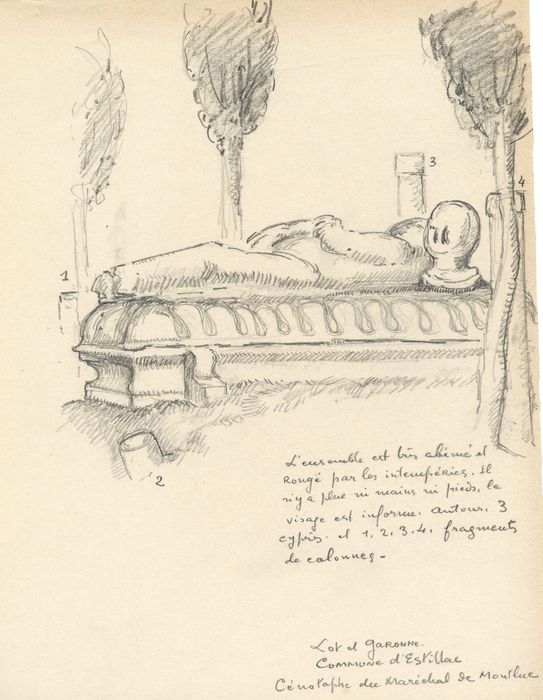 3
4
1
2
L'ensemble est très abîmé et
rongé par les intempéries. Il
n'y a plus ni mains ni pieds, le
visage est informe. autour. 3
cyprès. et 1, 2, 3, 4, fragments
de colonnes -
Lot et Garonne.
Commune d'Estillac
Cénotaphe du Maréchal de Montluc